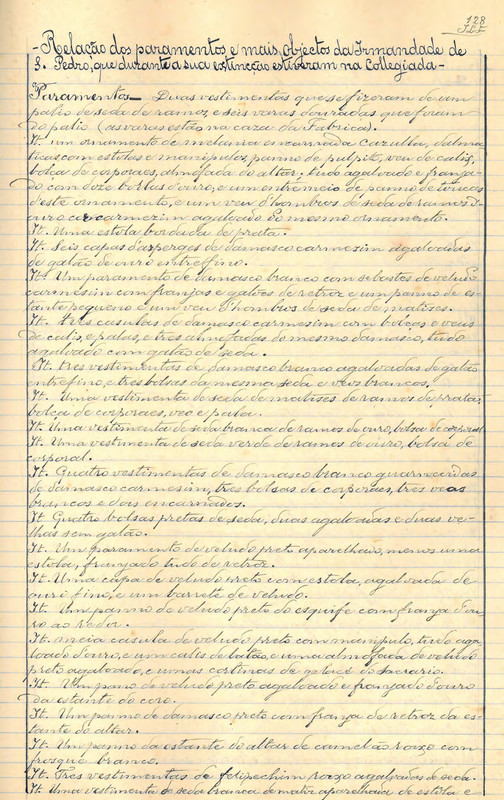 128
- Relação dos paramentos, e mais objectos da Irmandade de
S. Pedro, que durante a sua extincção estiveram na Collegiada -
Paramentos - Duas vestimentas que se fizeram de um
palio de seda de ramos, e seis varas douradas que foram
do palio (as varas estão na caza da Fabrica).
It. um ornamento de melania encarnada cazulla, dalma
ticas, com estolas e manipulos, panno de pulpito, veu de calis,
bolça de corporaes, almofada do altar; tudo agaloado e franja-
do com doze borlas d'ouro, e um entremeio de panno de
d'este ornamento, e um veu d'hombros de seda de ramos d'
ouro carmezim agaloado do mesmo ornamento.
It. Uma estola bordada de prata.
It. Seis capas d'asperges de damasco carmezim agaloadas
de galão de ouro entrefino.
It. Um paramento de damasco branco com sebastes de veludo
carmesim com franjas e galões de retroz e um panno de es-
tante pequeno e um veu d'hombros de seda de matizes.
It. tres casulas de damasco carmesim com bolças e veus
de calis, e palas, e tres almofadas do mesmo damasco, tudo
agaloado com galão de seda.
It. tres vestimentas de damasco branco agaloadas de galão
entrefino, e tres bolsas da mesma seda e veos brancos.
It. Uma vestimenta de seda de matises de ramos de prata,
bolça de corporaes, veo e pala.
It. Uma vestimenta de seda branca de ramos de ouro, bolsa de corporal
It. Uma vestimenta de seda verde de ramos de ouro, bolsa de
corporal.
It. Quatro vestimentas de damasco branco guarnecidas
de damasco carmesim, tres bolsas de corporaes, tres veos
brancos e dois encarnados.
It. Quatro bolsas pretas de seda, duas agaloadas e duas ve-
lhas sem galão.
It. Um paramento de veludo preto aparelhado, menos uma
estola, franjado tudo de retroz.
It. Uma capa de veludo preto com estola, agaloada de
ouro fino, e um barrete de veludo.
It. Um panno de veludo preto do esquife com franja d'ou-
ro ao redor.
It. meia casula de veludo preto com manipulo, tudo aga-
loado d'ouro, e um calis de latão, e uma almofada de veludo
preto agaloado, e umas cortinas de do sacrario.
It. Um pano de veludo preto agaloado e franjado d'ouro
da estante do coro.
It. Um panno de damasco preto com franja de retroz da es-
tante do altar.
It. Um panno da estante do altar de camelão roxo com
froque branco.
It. Tres vestimentas de roxo agaloadas de seda.
It. Uma vestimenta de seda branca de matiz aparelhada de estola e